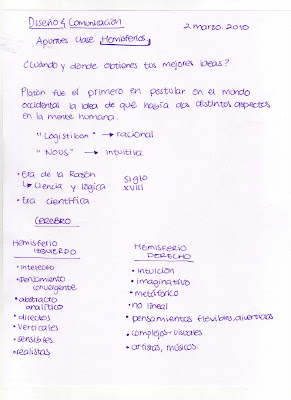 Diseño & Comunicación
2 marzo. 2010
Apuntes clase Hemisferios
¿Cuándo y dónde obtienes tus mejores ideas?
Platón fue el primero en postular en el mundo
occidental la idea de que había dos distintos aspectos
en la mente humana.
"Logistikon" → racional
"NOUS" → intuitiva
• Era de la Razón siglo
↳ Ciencia y lógica XVIII
• Era científica
CEREBRO
Hemisferio
IZQUIERDO
• intelecto
• pensamiento
convergente
• abstracto
analítico
• directos
• Verticales
• sensibles
• realistas
Hemisferio
DERECHO
• intuición
• imaginativo
• metafórico
• no lineal
• pensamientos flexibles, divertidos
• complejos-visuales
• artistas, músicos.